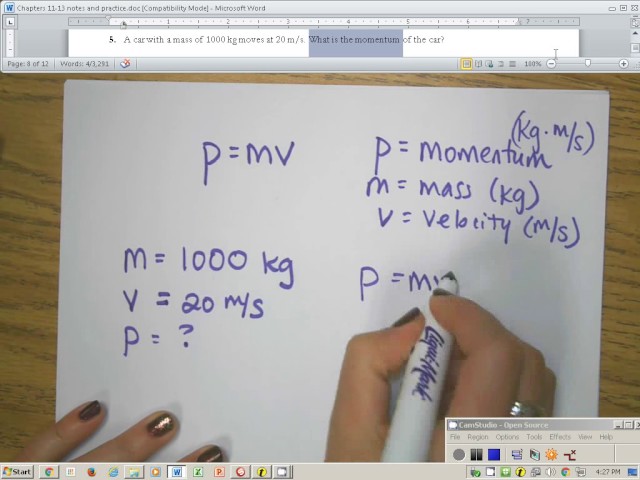 Chapters 11-13 notes and practice.doc [Compatibility Mode] - Microsoft Word
5. A car with a mass of 1000 kg moves at 20 m/s. What is the momentum of the car?
Page: 8 of 12 Words: 4/3,291 100%
p = mv
(kg · m/s)
p = momentum
m = mass (kg)
v = velocity (m/s)
m = 1000 kg
v = 20 m/s
p = ?
p = mv
CamStudio - Open Source
File Region Options Tools Effects View Help
Start
4:27 PM